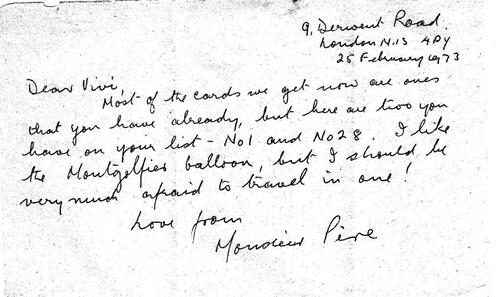 9, Derwent Road.
London N.13 4PY
25 February 1973
Dear Vivi,
Most of the cards we get now are ones
that you have already, but here are two you
have on your list - No1 and No28. I like
the Montgolfier balloon, but I should be
very much afraid to travel in one!
Love from
Monsieur Père